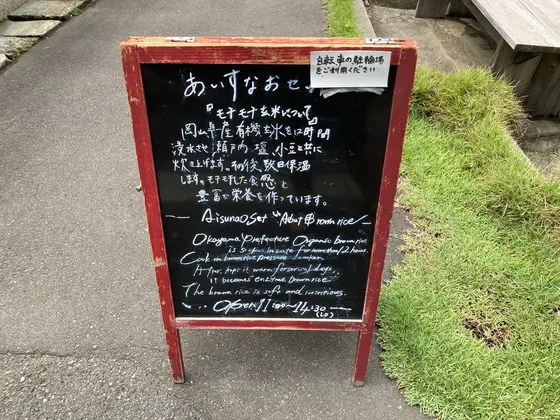 自転車の駐輪場
をご利用ください
あいすなおせ
『モチモチ玄米について』
岡山県産有機玄米を12時間
浸水させ瀬戸内塩、小豆と共に
炊き上げます。その後、数日保温
します。モチモチした食感と
豊富な栄養を作っています。
AisunaO Set "About Brown rice"
Okayama Prefecture Organic brown rice
is in water for more than 12 hours.
Cook in brown rice pressure
After, kept it warm for several days,
it becomes enzyme brown rice
The brown rice is soft and nutritious.
Open 11:00~14:30
(LO)